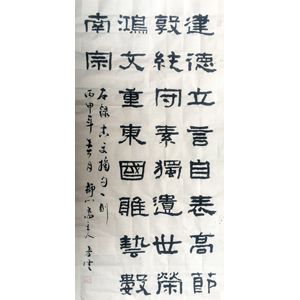 建德立言自表高節
敦統守素獨遺世榮
鴻文重東國雕藝數
南宗
右錄古文摘句一則
丙申年 月 靜